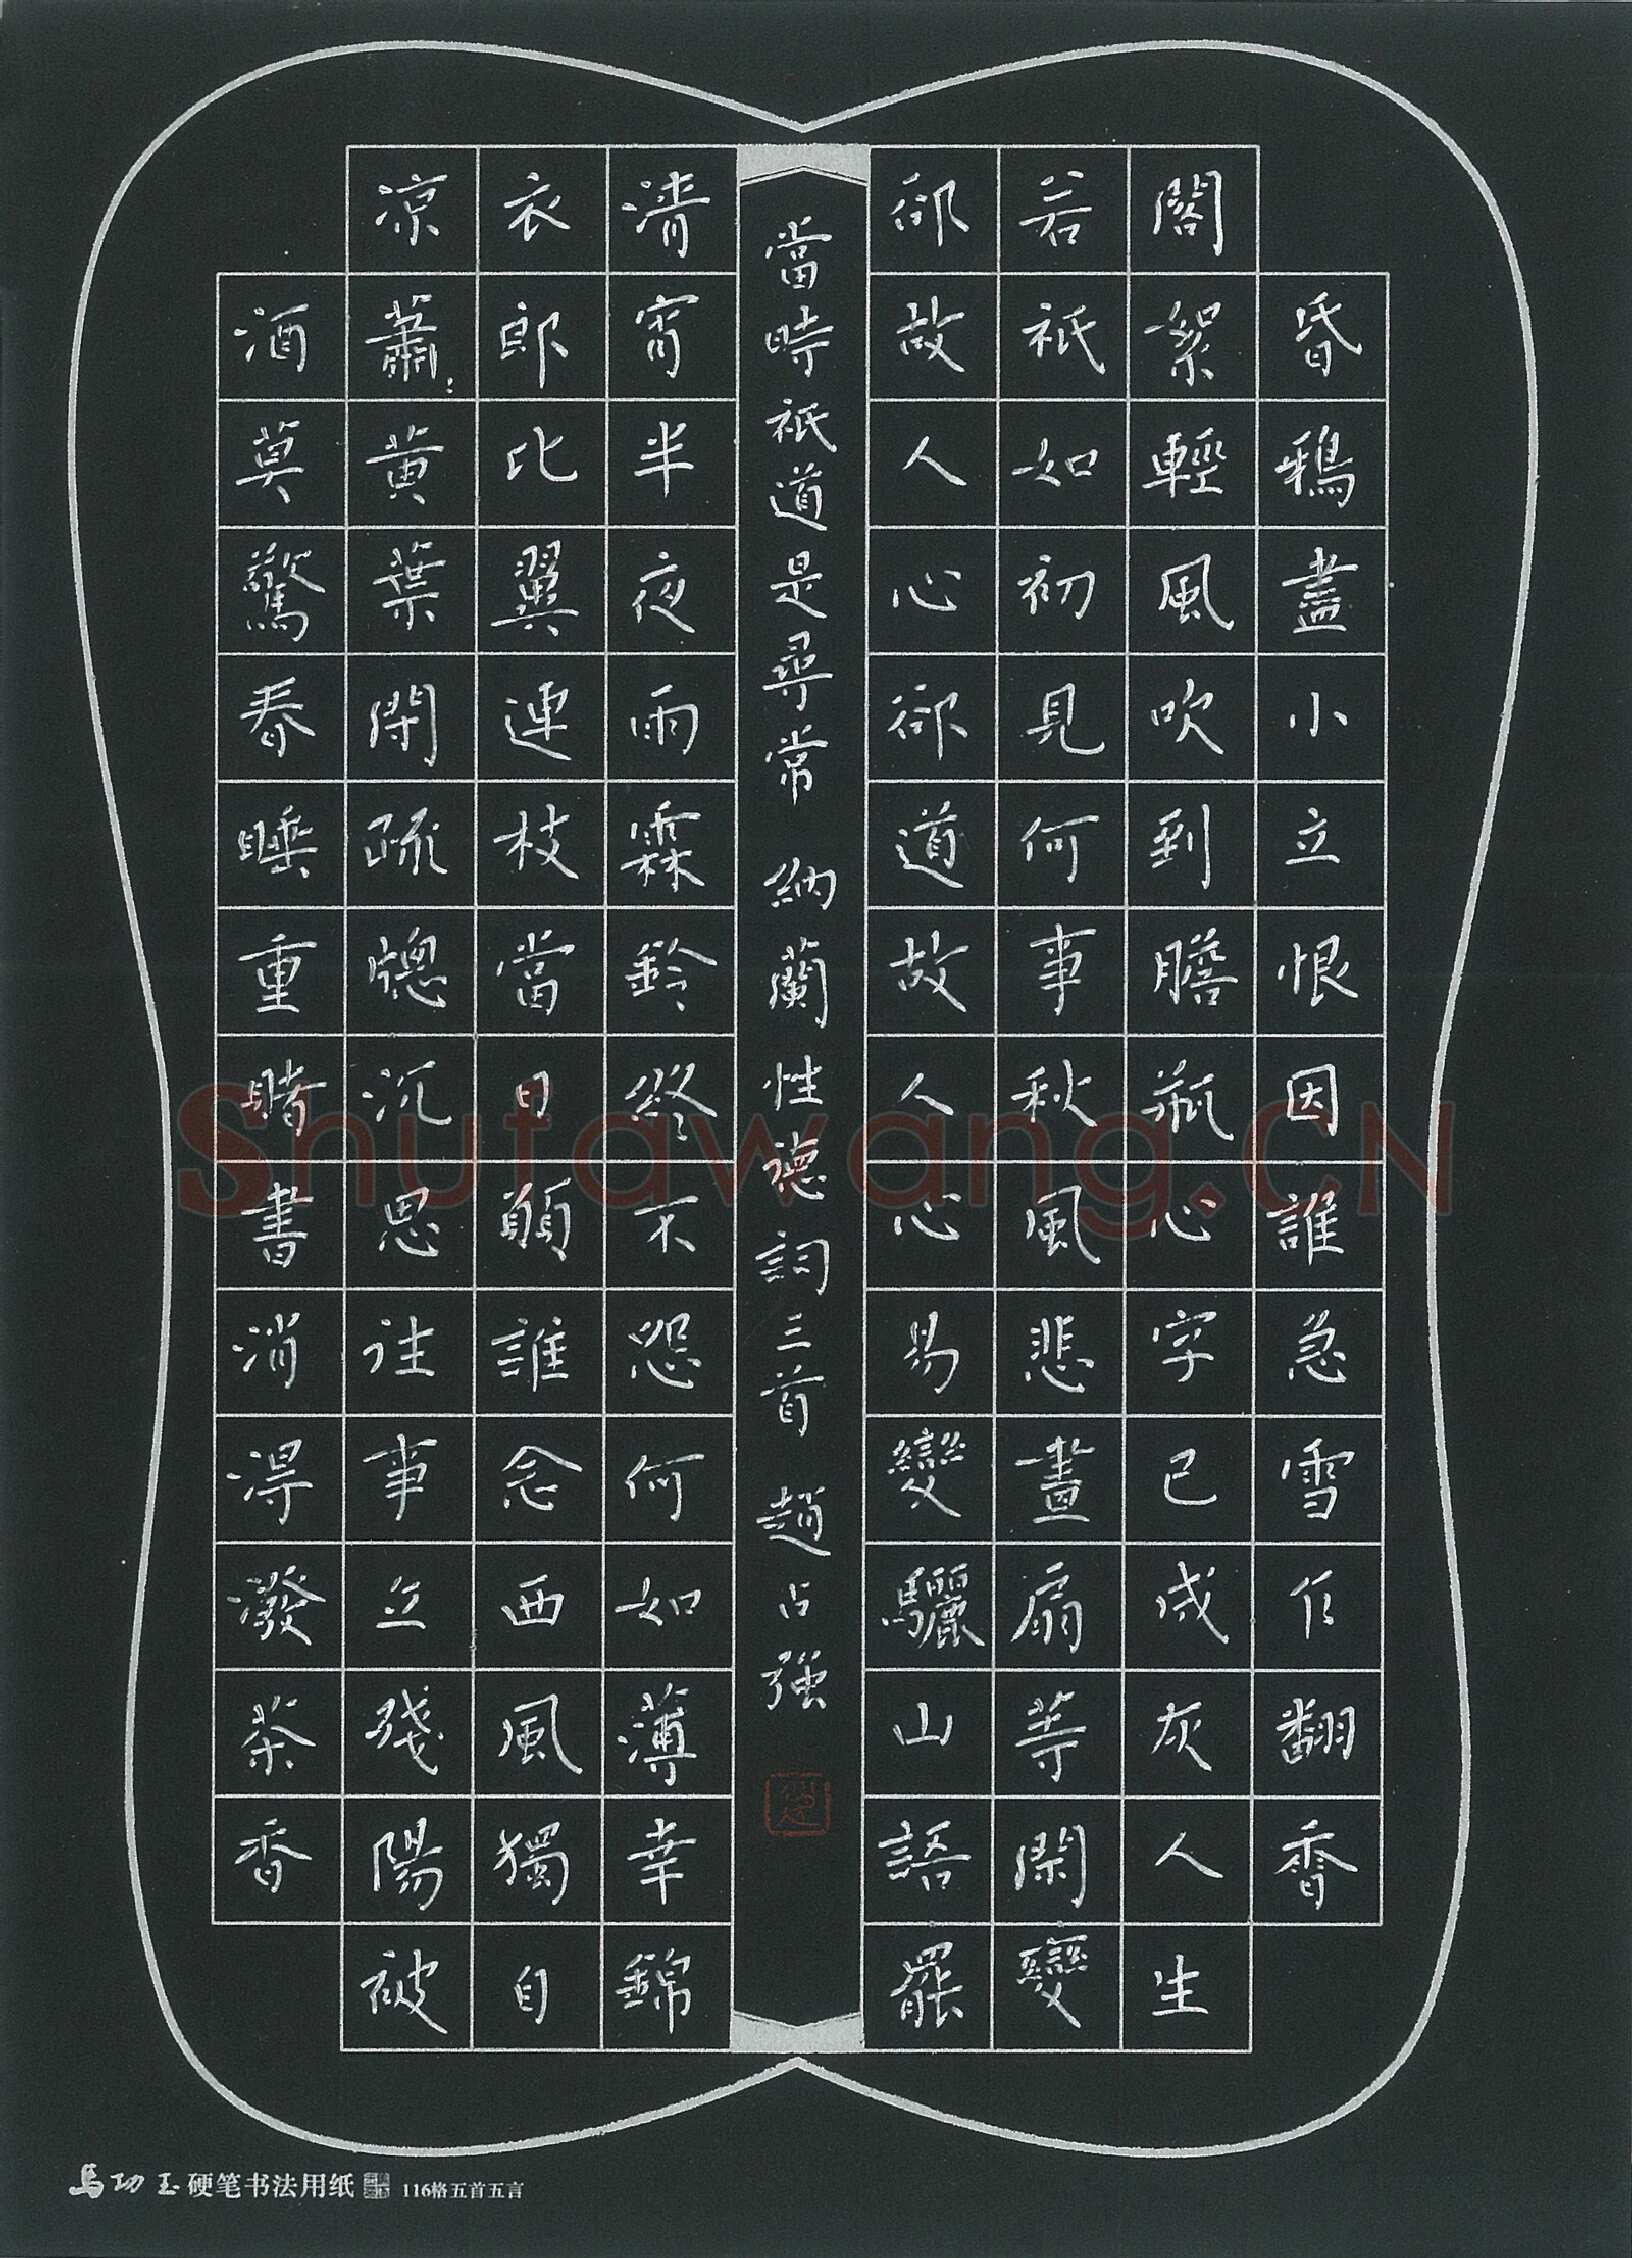 昏鴉盡小立恨因誰急雪乍翻香
閣絮輕風吹到膽瓶心字已成灰人生
若祗如初見何事秋風悲畫扇等閑變
卻故人心卻道故人心易變驪山語罷
清宵半夜雨霖鈴終不怨何如薄幸錦
衣郎比翼連枝當日願誰念西風獨自
凉蕭:黄葉閉疏牕沉思往事立殘陽被
酒莫驚春睡重賭書消得潑茶香
當時祗道是尋常 納蘭性德詞三首 趙占強
馬功玉硬笔书法用纸 116格五首五言
Shufawang.CN